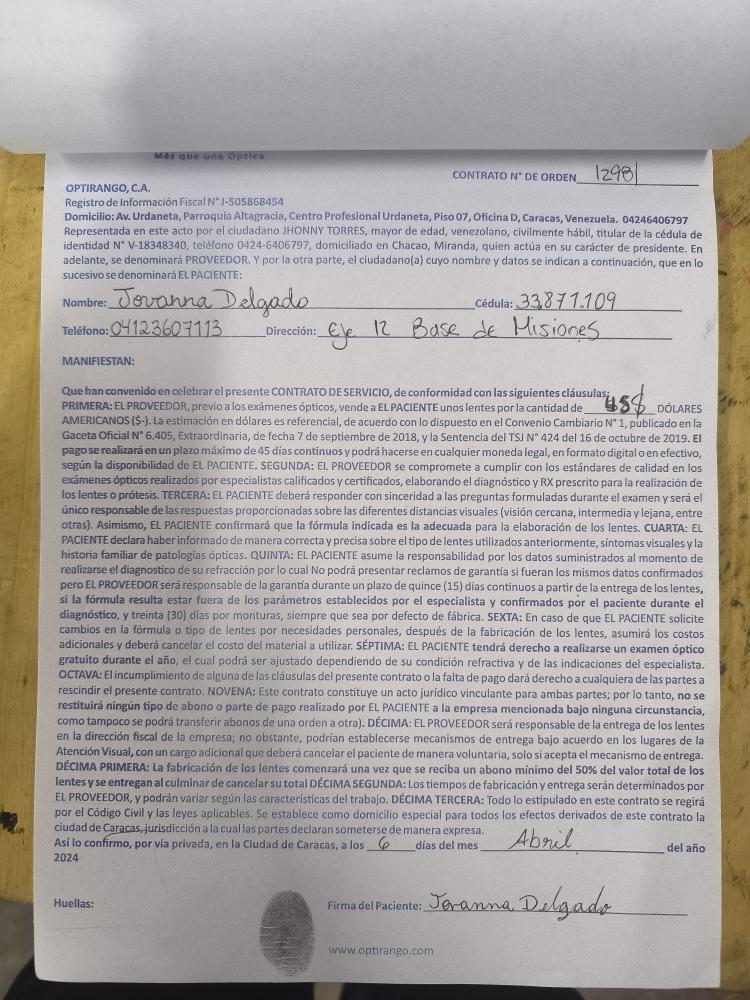 Más que una Óptica
CONTRATO N° DE ORDEN 1298
OPTIRANGO, C.A.
Registro de Información Fiscal N° J-505868454
Domicilio: Av. Urdaneta, Parroquia Altagracia, Centro Profesional Urdaneta, Piso 07, Oficina D, Caracas, Venezuela. 04246406797
Representada en este acto por el ciudadano JHONNY TORRES, mayor de edad, venezolano, civilmente hábil, titular de la cédula de
identidad N° V-18348340, teléfono 0424-6406797, domiciliado en Chacao, Miranda, quien actúa en su carácter de presidente. En
adelante, se denominará PROVEEDOR. Y por la otra parte, el ciudadano(a) cuyo nombre y datos se indican a continuación, que en lo
sucesivo se denominará EL PACIENTE:
Nombre: Jovanna Delgado Cédula: 33.871.109
Teléfono: 04123607113 Dirección: Eje 12 Base de Misiones
MANIFIESTAN:
Que han convenido en celebrar el presente CONTRATO DE SERVICIO, de conformidad con las siguientes cláusulas:
PRIMERA: EL PROVEEDOR, previo a los exámenes ópticos, vende a EL PACIENTE unos lentes por la cantidad de DÓLARES
AMERICANOS ($-). La estimación en dólares es referencial, de acuerdo con lo dispuesto en el Convenio Cambiario N° 1, publicado en la
Gaceta Oficial N° 6.405, Extraordinaria, de fecha 7 de septiembre de 2018, y la Sentencia del TSJ N° 424 del 16 de octubre de 2019. El
pago se realizará en un plazo máximo de 45 días continuos y podrá hacerse en cualquier moneda legal, en formato digital o en efectivo,
según la disponibilidad de EL PACIENTE. SEGUNDA: EL PROVEEDOR se compromete a cumplir con los estándares de calidad en los
exámenes ópticos realizados por especialistas calificados y certificados, elaborando el diagnóstico y RX prescrito para la realización de
los lentes o prótesis. TERCERA: EL PACIENTE deberá responder con sinceridad a las preguntas formuladas durante el examen y será el
único responsable de las respuestas proporcionadas sobre las diferentes distancias visuales (visión cercana, intermedia y lejana, entre
otras). Asimismo, EL PACIENTE confirmará que la fórmula indicada es la adecuada para la elaboración de los lentes. CUARTA: EL
PACIENTE declara haber informado de manera correcta y precisa sobre el tipo de lentes utilizados anteriormente, síntomas visuales y la
historia familiar de patologías ópticas. QUINTA: EL PACIENTE asume la responsabilidad por los datos suministrados al momento de
realizarse el diagnostico de su refracción por lo cual No podrá presentar reclamos de garantía si fueran los mismos datos confirmados
pero EL PROVEEDOR será responsable de la garantía durante un plazo de quince (15) días continuos a partir de la entrega de los lentes,
si la fórmula resulta estar fuera de los parámetros establecidos por el especialista y confirmados por el paciente durante el
diagnóstico, y treinta (30) días por monturas, siempre que sea por defecto de fábrica. SEXTA: En caso de que EL PACIENTE solicite
cambios en la fórmula o tipo de lentes por necesidades personales, después de la fabricación de los lentes, asumirá los costos
adicionales y deberá cancelar el costo del material a utilizar. SÉPTIMA: EL PACIENTE tendrá derecho a realizarse un examen óptico
gratuito durante el año, el cual podrá ser ajustado dependiendo de su condición refractiva y de las indicaciones del especialista.
OCTAVA: El incumplimiento de alguna de las cláusulas del presente contrato o la falta de pago dará derecho a cualquiera de las partes a
rescindir el presente contrato. NOVENA: Este contrato constituye un acto jurídico vinculante para ambas partes; por lo tanto, no se
restituirá ningún tipo de abono o parte de pago realizado por EL PACIENTE a la empresa mencionada bajo ninguna circunstancia,
como tampoco se podrá transferir abonos de una orden a otra). DÉCIMA: EL PROVEEDOR será responsable de la entrega de los lentes
en la dirección fiscal de la empresa; no obstante, podrían establecerse mecanismos de entrega bajo acuerdo en los lugares de la
Atención Visual, con un cargo adicional que deberá cancelar el paciente de manera voluntaria, solo si acepta el mecanismo de entrega.
DÉCIMA PRIMERA: La fabricación de los lentes comenzará una vez que se reciba un abono mínimo del 50% del valor total de los
lentes y se entregan al culminar de cancelar su total DÉCIMA SEGUNDA: Los tiempos de fabricación y entrega serán determinados por
EL PROVEEDOR, y podrán variar según las características del trabajo. DÉCIMA TERCERA: Todo lo estipulado en este contrato se regirá
por el Código Civil y las leyes aplicables. Se establece como domicilio especial para todos los efectos derivados de este contrato la
ciudad de Caracas, jurisdicción a la cual las partes declaran someterse de manera expresa.
Así lo confirmo, por vía privada, en la Ciudad de Caracas, a los 6 días del mes Abril del año
2024
Huellas: Firma del Paciente: Jovanna Delgado
www.optirango.com